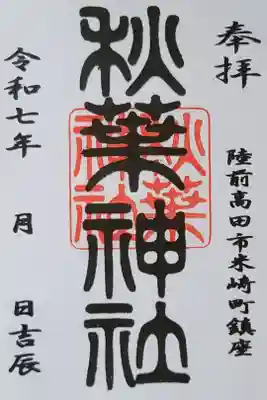 奉拝
陸前高田市米崎町鎮座
秋葉神社
秋葉
神社
令和七年 月 日吉辰